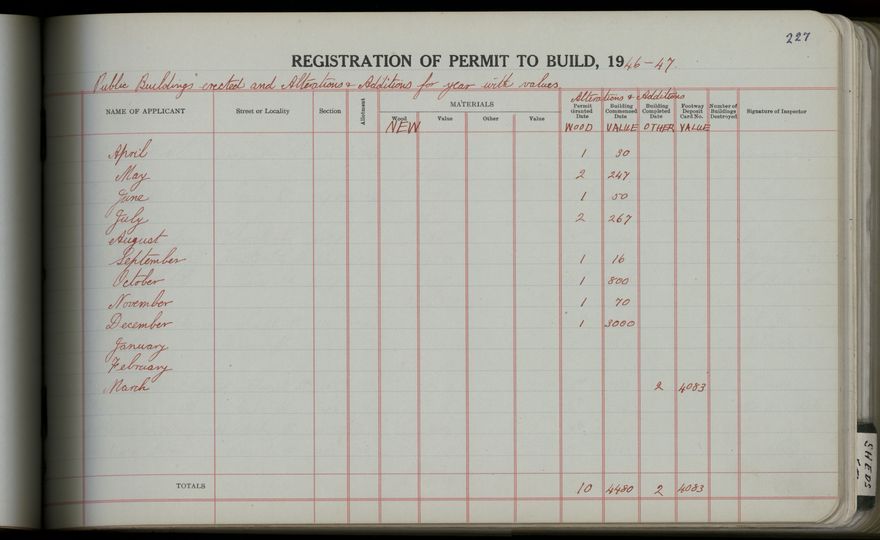 227
REGISTRATION OF PERMIT TO BUILD, 1946-47
Public Buildings erected and Alterations & Additions for year with values
NAME OF APPLICANT Street or Locality Section Allotment MATERIALS Alterations & Additions
Wood Value Other Value Permit Granted Date Building Commenced Date Building Completed Date Footway Deposit Card No. Number of Buildings Destroyed Signature of Inspector
NEW WOOD VALUE OTHER VALUE
April 1 30
May 2 247
June 1 50
July 2 267
August
September 1 16
October 1 800
November 1 70
December 1 3000
January
February
March 2 4083
TOTALS 10 4480 2 4083
SHEDS